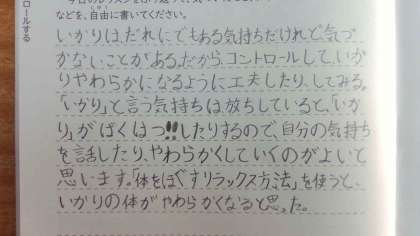 ロールする
などを、自由に書いてください。
いかりは、だれにでもある気持ちだけれど気づ
かないことがある。だから、コントロールして、いか
りやわらかになるように工夫したり、してみる。
「いかり」と言う気持ちは放ちしていると、「いか
り」がばくはつ!!したりするので、自分の気持ち
を話したり、やわらかくしていくのがよいと
思います。「体をほぐすリラックス方法」を使うと、
いかりの体がやわらかくなると思った。